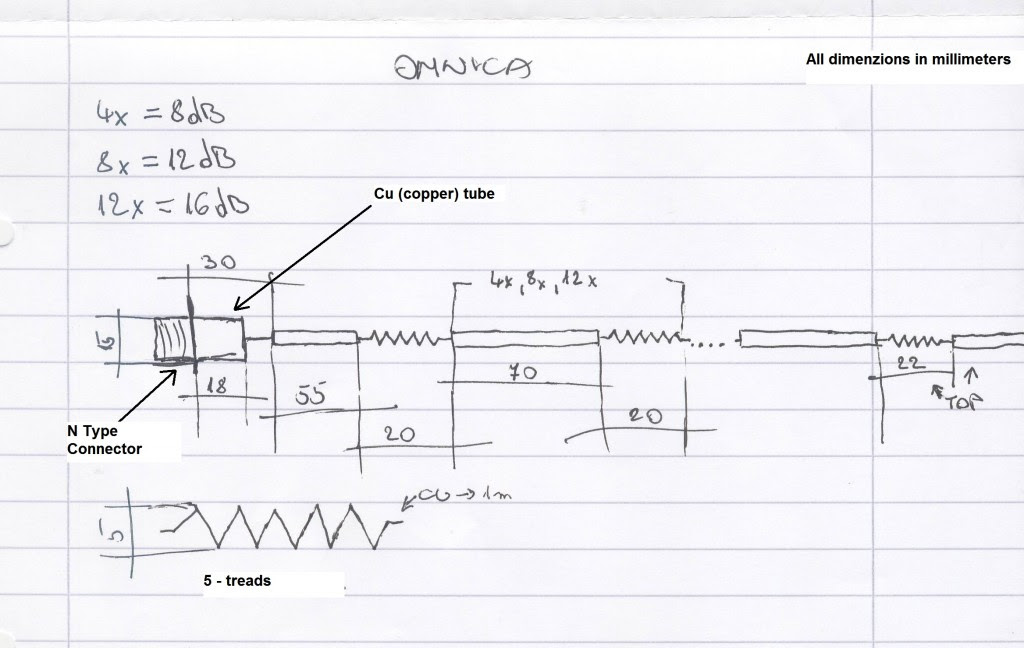 OMNICA
All dimenzions in millimeters
4x = 8dB
8x = 12dB
12x = 16dB
Cu (copper) tube
30
4x, 8x, 12x
18
55
70
22
TOP
20
20
N Type
Connector
Cu → 1m
5 - treads